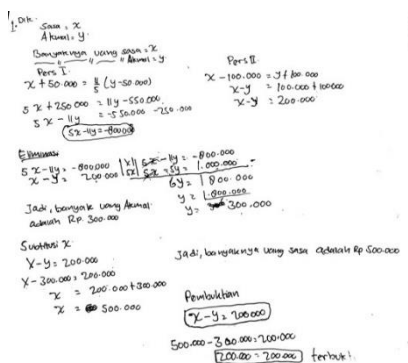 1. Dik:
Sasa = x
Akmal = y
Banyaknya uang sasa = x
" " " Akmal = y
Pers I
x + 50.000 = 11/5 (y - 50.000)
5x + 250.000 = 11y - 550.000
5x - 11y = -550.000 - 250.000
5x - 11y = -800.000
Pers II
x - 100.000 = y + 100.000
x - y = 100.000 + 100.000
x - y = 200.000
Eliminasi
5x - 11y = -800.000 |x1| 5x - 11y = -800.000
x - y = 200.000 |x5| 5x - 5y = 1.000.000
6y = 1.800.000
y = 1.800.000
y = 300.000
Jadi, banyak uang Akmal
adalah Rp. 300.000
Substitusi x
x - y = 200.000
x - 300.000 = 200.000
x = 200.000 + 300.000
x = 500.000
Jadi, banyaknya uang sasa adalah Rp 500.000
Pembuktian
x - y = 200000
500.000 - 300.000 = 200.000
200.000 = 200.000 terbukti